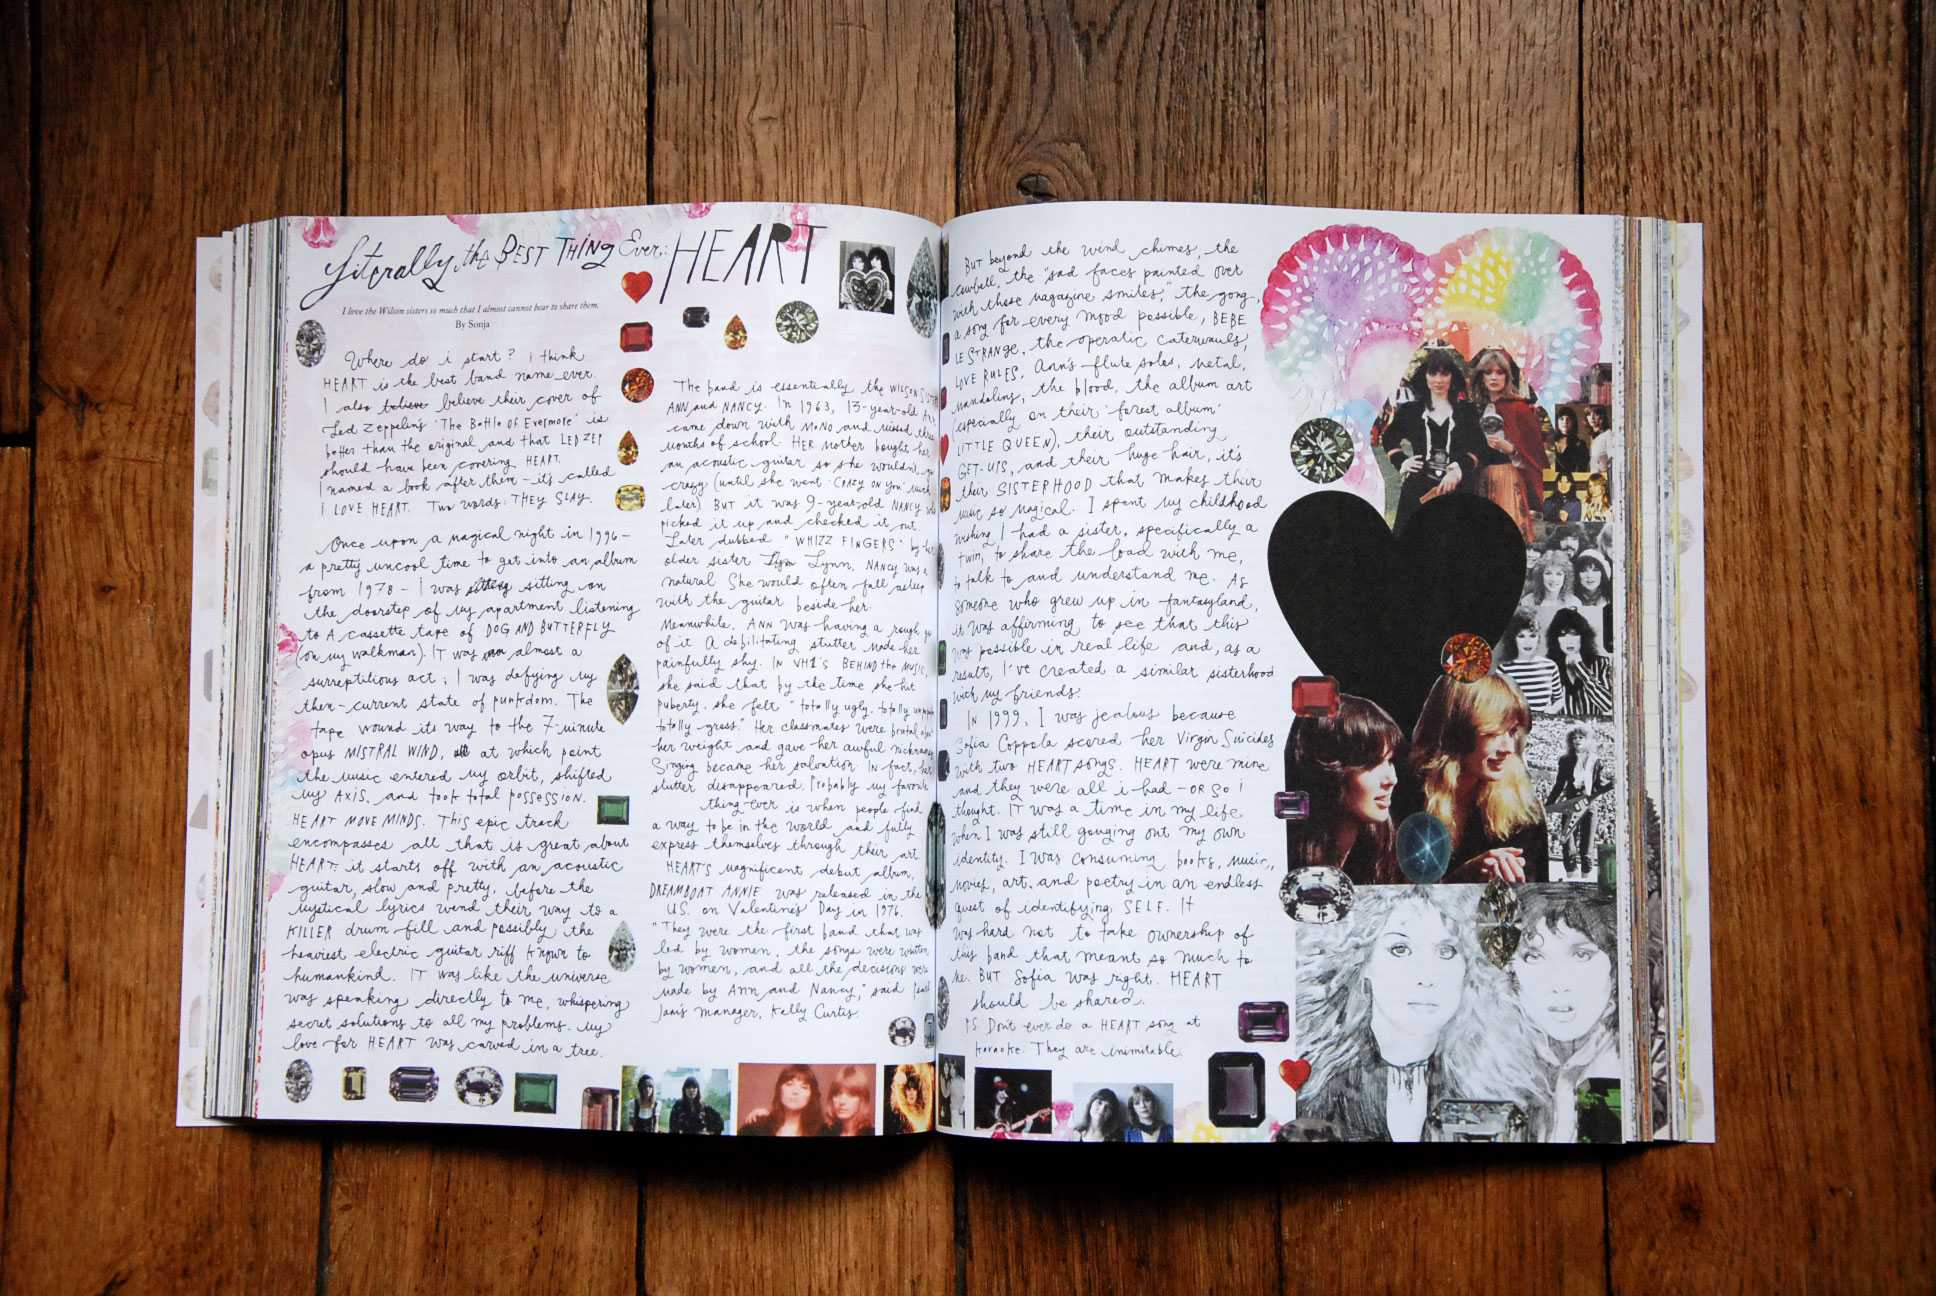 Literally the BEST THING Ever: HEART
I love the Wilson sisters so much that I almost cannot bear to share them.
By Sonja
Where do i start? i think
HEART is the best band name ever.
I also believe believe their cover of
Led Zeppelin's 'The Battle of Evermore' is
better than the original and that LED ZEP
should have been covering HEART.
I named a book after them – it's called
I LOVE HEART. Two words: THEY SLAY.
Once upon a magical night in 1996 –
a pretty uncool time to get into an album
from 1978 – I was sitting on
the doorstep of my apartment listening
to A cassette tape of DOG AND BUTTERFLY
(on my walkman). IT was almost a
surreptitious act; I was defying my
then-current state of punkdom. The
tape wound its way to the 7-minute
opus MISTRAL WIND, at which point
the music entered my orbit, shifted
my AXIS, and took total possession.
HEART MOVE MINDS. This epic track
encompasses all that is great about
HEART: it starts off with an acoustic
guitar, slow and pretty, before the
mystical lyrics wend their way to a
KILLER drum fill and possibly the
heaviest electric guitar riff known to
humankind. IT was like the universe
was speaking directly to me, whispering
secret solutions to all my problems. My
love for HEART was carved in a tree.
The band is essentially the WILSON
ANN and NANCY. In 1963, 13-year-old Ann
came down with MONO and missed three
months of school. HER mother bought her
an acoustic guitar so she wouldn't go
crazy (until she went 'CRAZY ON YOU' much
later). BUT it was 9-year-old NANCY who
picked it up and checked it out.
Later dubbed "WHIZZ FINGERS" by her
older sister Lynn, NANCY was a
natural She would often fall asleep
with the guitar beside her.
Meanwhile, ANN was having a rough go
of it A debilitating stutter made her
painfully shy. IN VH1'S BEHIND the MUSIC,
she said that by the time she hit
puberty, she felt "totally ugly, totally
totally gross." Her classmates were brutal about
her weight and gave her awful nicknames
Singing became her salvation IN fact, her
stutter disappeared. Probably my favorite
thing ever is when people find
a way to be in the world and fully
express themselves through their art.
HEART'S magnificent debut album,
DREAMBOAT ANNIE was released in the
U.S. on Valentine's Day in 1976.
"They were the first band that was
led by women, the songs were written
by women, and all the decisions were
made by Ann and Nancy," said
manager, Kelly Curtis.
BUT beyond the wind chimes, the
cowbell, the "sad faces painted over
with those magazine smiles," the gong,
a song for every mood possible, BEBE
LE STRANGE, the operatic caterwauls,
LOVE RULES, Ann's flute solos, metal,
mandolins, the blood, the album art
(especially on their 'forest album'
LITTLE QUEEN), their outstanding
GET-UPS, and their huge hair, it's
their SISTERHOOD that makes their
music so magical. I spent my childhood
wishing I had a sister, specifically a
twin, to share the load with me,
to talk to and understand me. As
someone who grew up in fantasyland,
it was affirming to see that this
was possible in real life and, as a
result, I've created a similar sisterhood
with my friends.
IN 1999, I was jealous because
Sofia Coppola scored her Virgin Suicides
with two HEART songs. HEART were mine
and they were all i had – OR SO I
thought. IT was a time in my life
when I was still gouging out my own
identity. I was consuming books, music,
movies, art, and poetry in an endless
quest of identifying SELF. It
was hard not to take ownership of
this band that meant so much to
me. BUT Sofia was right. HEART
should be shared.
PS Don't ever do a HEART song at
karaoke. They are inimitable.